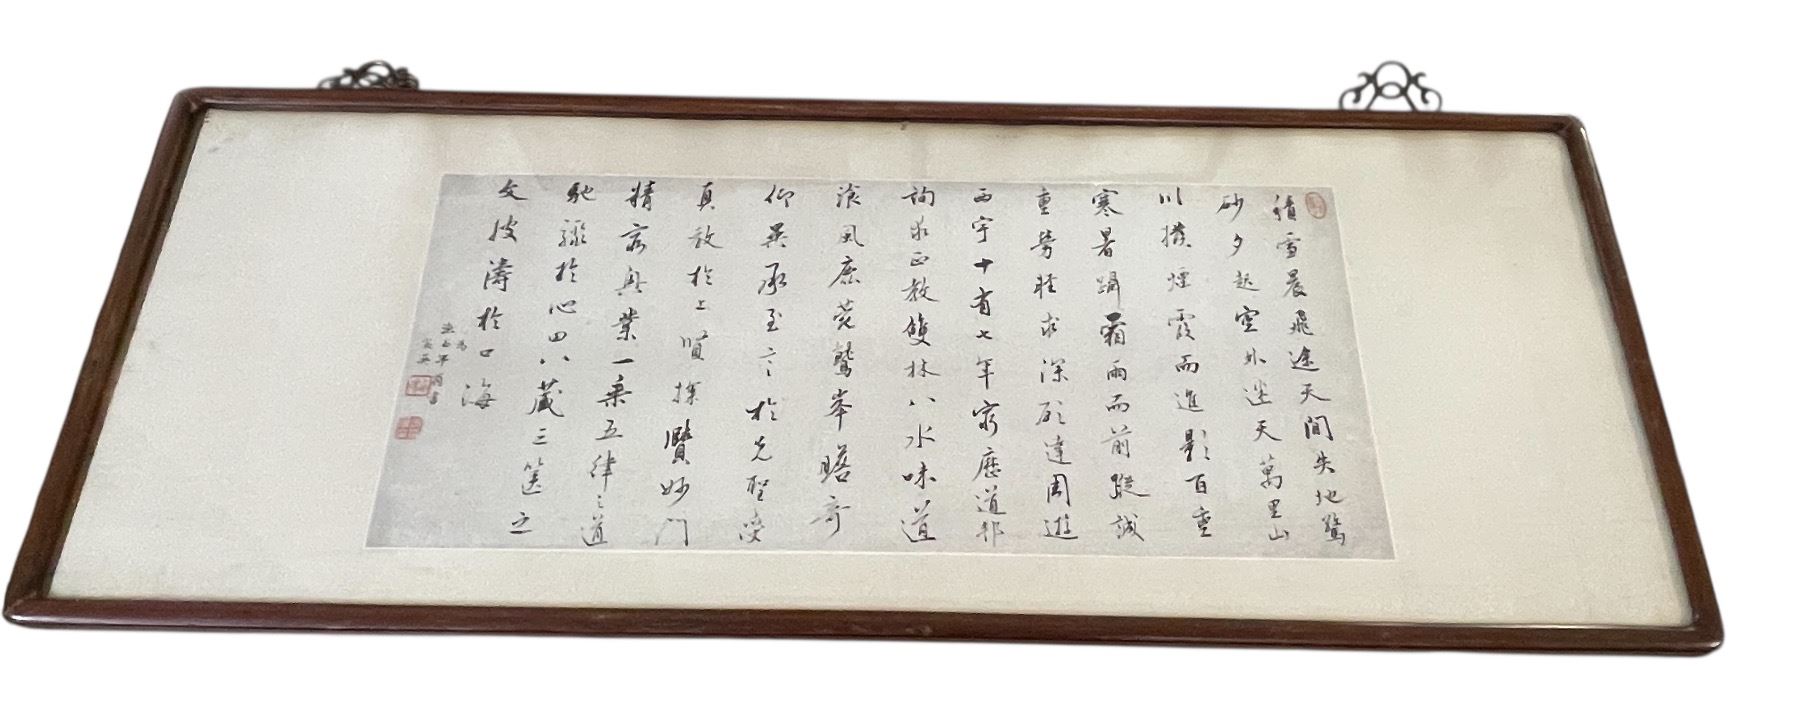 積雪晨飛途天間失地驚
砂夕起空外迷天萬里山
川撥煙霞而進影百重
寒暑躡霜雨而前蹤誠
重勞輕求深願達周遊
西宇十有七年窮歷道邦
詢求正教雙林八水味道
湌風鹿苑鷲峯瞻奇
仰異承至言於先聖受
真教於上賢探賾妙門
精窮奧業一乘五律之道
馳驟於心田八藏三篋之
文波濤於口海